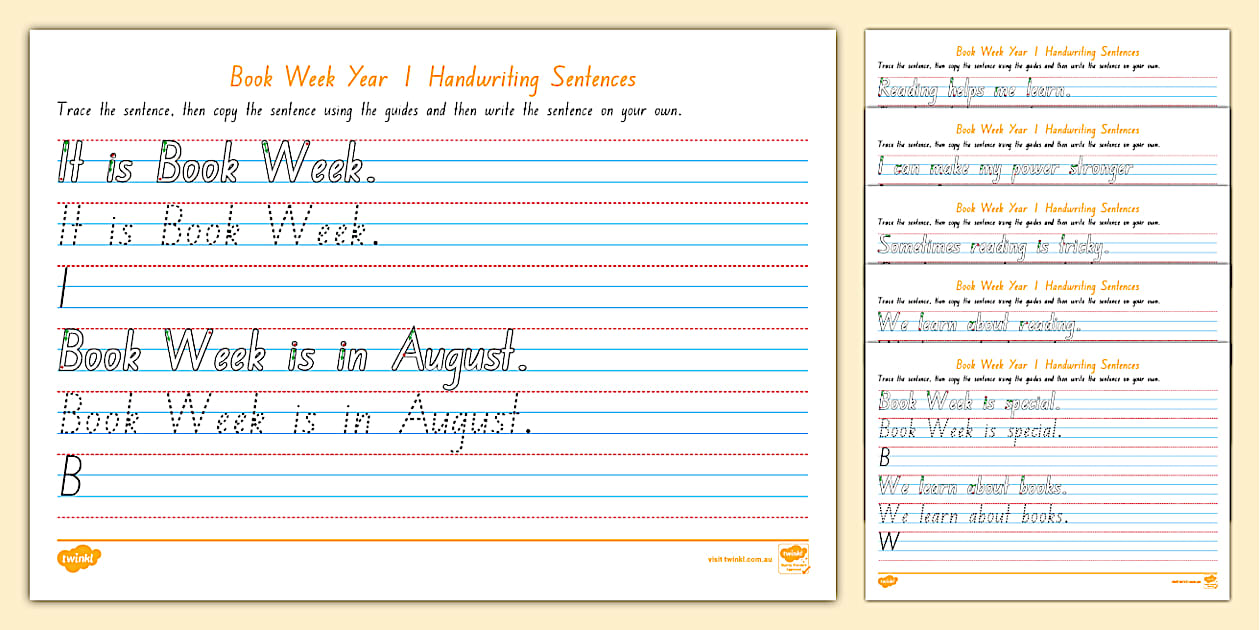 Book Week Year 1 Handwriting Sentences
Trace the sentence, then copy the sentence using the guides and then write the sentence on your own.
It is Book Week.
It is Book Week.
I
Book Week is in August.
Book Week is in August.
B
twinkl
visit twinkl.com.au
twinkl
Book Week Year 1 Handwriting Sentences
Trace the sentence, then copy the sentence using the guides and then write the sentence on your own.
Reading helps me learn.
Book Week Year 1 Handwriting Sentences
Trace the sentence, then copy the sentence using the guides and then write the sentence on your own.
I can make my power stronger
Book Week Year 1 Handwriting Sentences
Trace the sentence, then copy the sentence using the guides and then write the sentence on your own.
Sometimes reading is tricky.
Book Week Year 1 Handwriting Sentences
Trace the sentence, then copy the sentence using the guides and then write the sentence on your own.
We learn about reading.
Book Week Year 1 Handwriting Sentences
Trace the sentence, then copy the sentence using the guides and then write the sentence on your own.
Book Week is special.
Book Week is special.
B
We learn about books.
We learn about books.
W
twinkl
visit twinkl.com.au